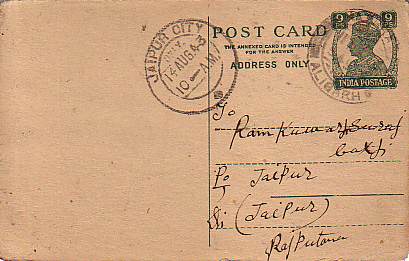 POST CARD
THE ANNEXED CARD IS INTENDED
FOR THE ANSWER
ADDRESS ONLY
9 PS 9 PS
INDIA POSTAGE
ALIGARH
JAIPUR CITY
14 AUG 43
10-AM
To
Ram Kuwar Suraj
baxji
Po Jaipur
(Jaipur)
Rajputana